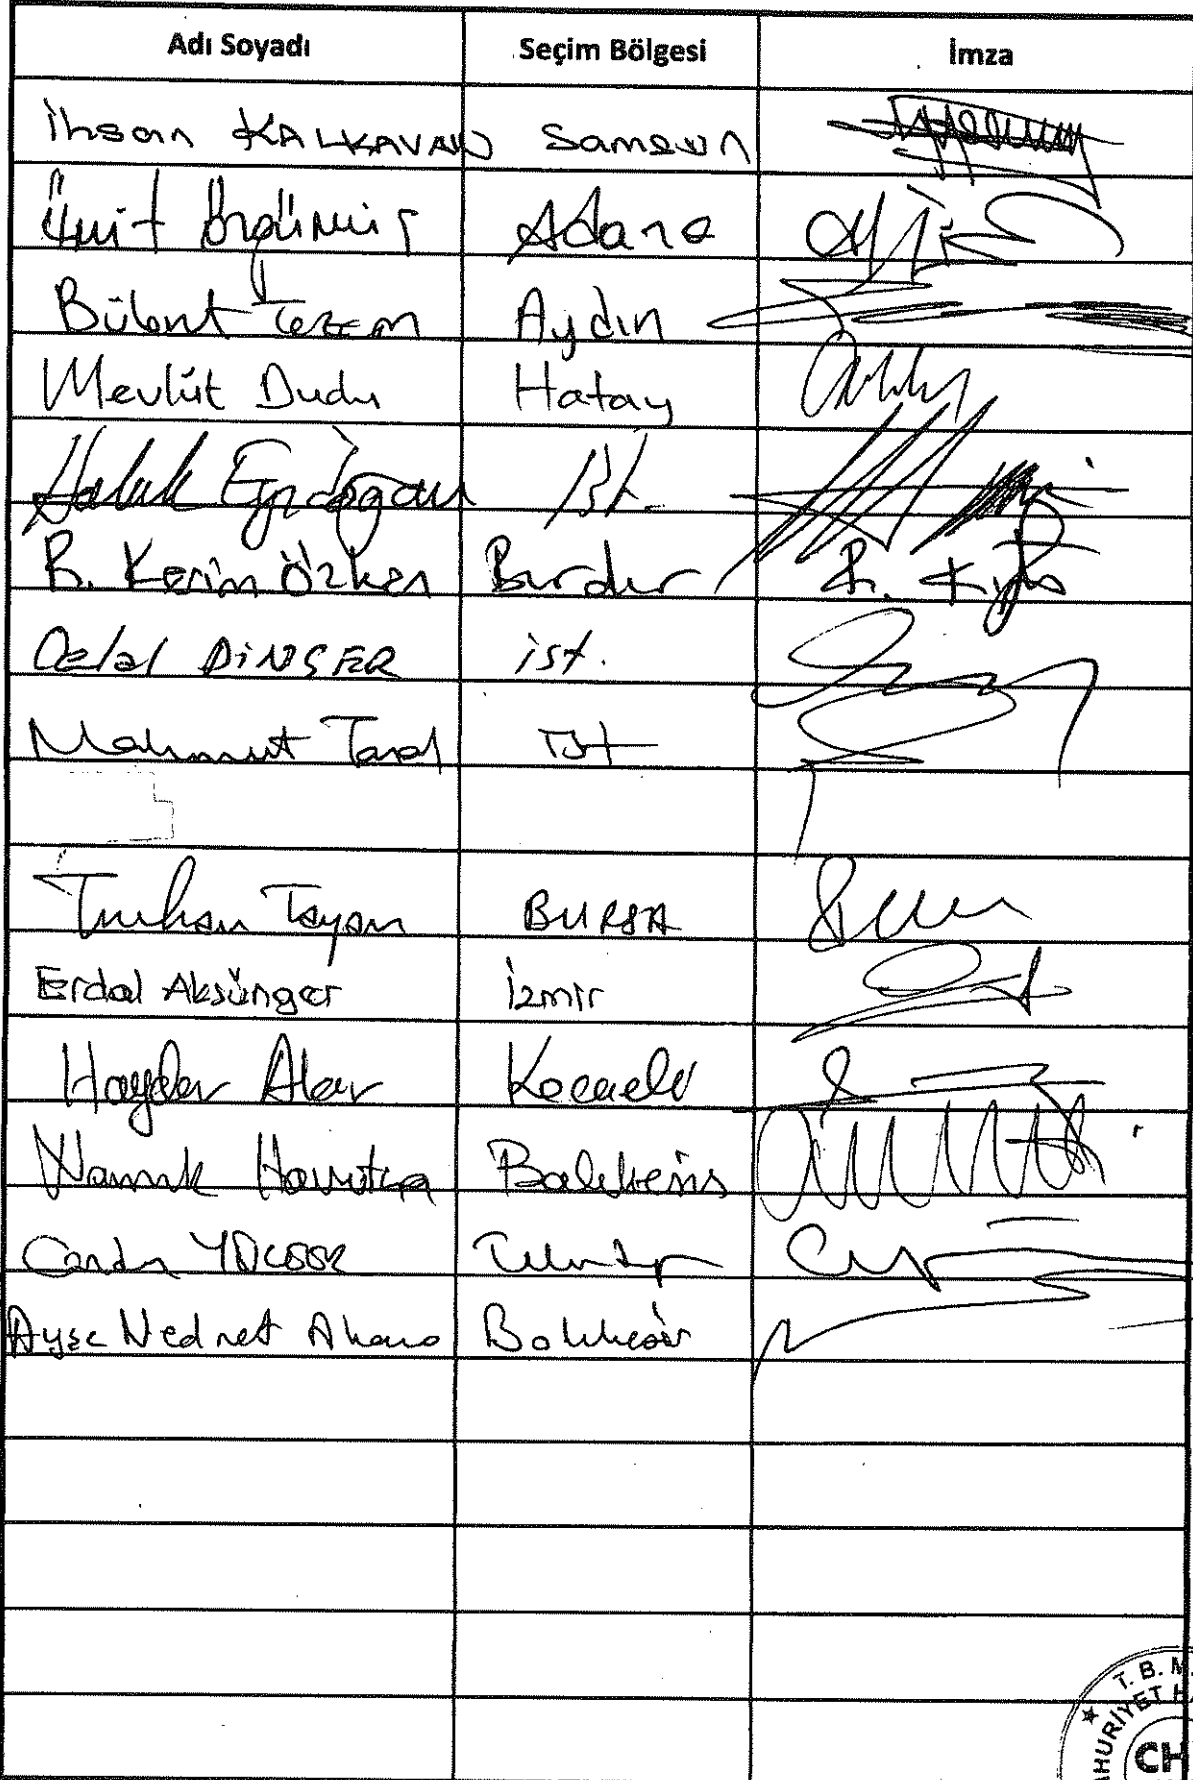 Adı Soyadı Seçim Bölgesi İmza
İhsan KALKAVAN Samsun
Ümit Özgümüş Adana
Bülent Tezcan Aydın
Mevlüt Dudu Hatay
Haluk Eyidoğan İst.
R. Kerim Özkan Burdur
Celal DİNÇER İst.
Mahmut Tanal İst
Turhan Tayan BURSA
Erdal Aksünger İzmir
Haydar Akar Kocaeli
Namık Havutça Balıkesir
Candan YÜCEER Tekirdağ
Ayşe Nedret Akova Balıkesir
T. B. M.
CH